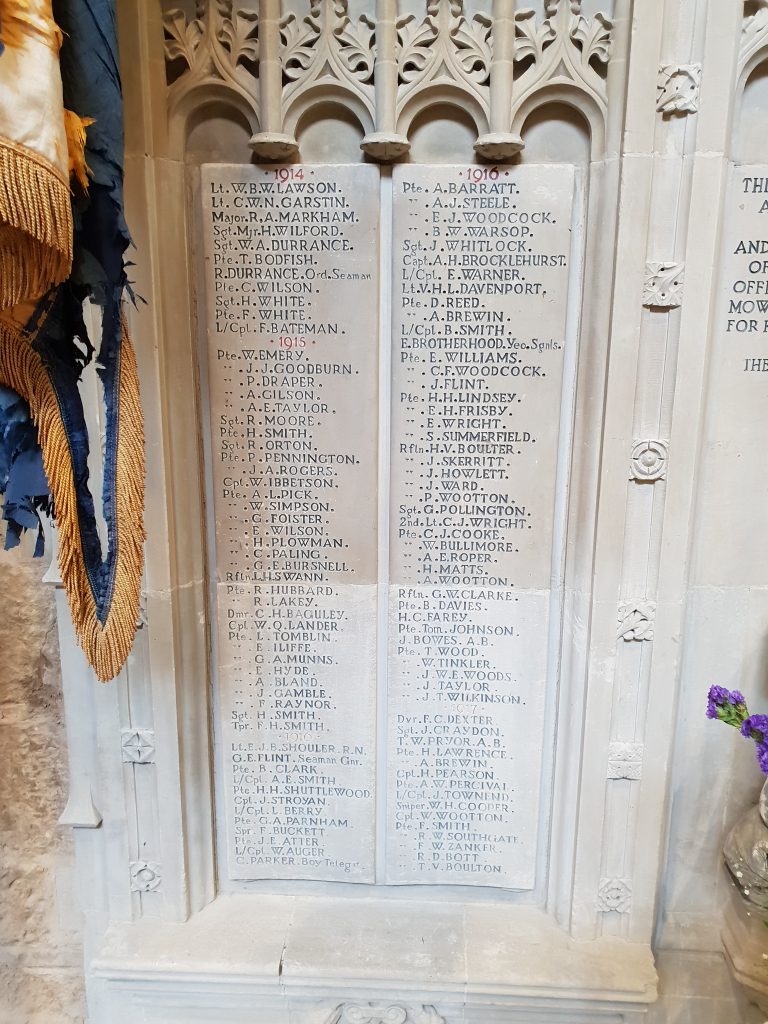 · 1914 ·
Lt. W.B.W. LAWSON.
Lt. C.W.N. GARSTIN.
Major. R.A. MARKHAM.
Sgt. Mjr. H. WILFORD.
Sgt. W.A. DURRANCE.
Pte. T. BODFISH.
R. DURRANCE. Ord. Seaman
Pte. C. WILSON.
Sgt. H. WHITE.
Pte. F. WHITE.
L/Cpl. F. BATEMAN.
· 1915 ·
Pte. W. EMERY.
" . J.J. GOODBURN.
" . P. DRAPER.
" . A. GILSON.
" . A.E. TAYLOR.
Sgt. R. MOORE.
Pte. H. SMITH.
Sgt. R. ORTON.
Pte. P. PENNINGTON.
" . J.A. ROGERS.
Cpl. W. IBBETSON.
Pte. A.L. PICK.
" . W. SIMPSON.
" . G. FOISTER.
" . E. WILSON.
" . H. PLOWMAN.
" . C. PALING.
" . G.E. BURSNELL.
Rfln. L.H. SWANN.
Pte. R. HUBBARD.
" . R. LAKEY.
Dmr. C.H. BAGULEY.
Cpl. W.Q. LANDER.
Pte. L. TOMBLIN.
" . E. ILIFFE.
" . G.A. MUNNS.
" . E. HYDE.
" . A. BLAND.
" . J. GAMBLE.
" . F. RAYNOR.
Sgt. H. SMITH.
Tpr. F.H. SMITH.
· 1916 ·
Lt. E.J.B. SHOULER. R.N.
G.E. FLINT. Seaman Gnr.
Pte. B. CLARK.
L/Cpl. A.E. SMITH
Pte. H.H. SHUTTLEWOOD.
Cpl. J. STROYAN.
L/Cpl. L. BERRY.
Pte. G.A. PARNHAM.
Spr. F. BUCKETT.
Pte. J.E. ATTER.
L/Cpl. W. AUGER.
C. PARKER. Boy Telegst.
· 1916 ·
Pte. A. BARRATT.
" . A.J. STEELE.
" . E.J. WOODCOCK.
" . B.W. WARSOP.
Sgt. J. WHITLOCK.
Capt. A.H. BROCKLEHURST.
L/Cpl. E. WARNER.
Lt. V.H.L. DAVENPORT.
Pte. D. REED.
" . A. BREWIN.
L/Cpl. B. SMITH.
E. BROTHERHOOD. Yeo. Sgnls.
Pte. E. WILLIAMS.
" . C.F. WOODCOCK.
" . J. FLINT.
Pte. H.H. LINDSEY.
" . E.H. FRISBY.
" . E. WRIGHT.
" . S. SUMMERFIELD.
Rfln. H.V. BOULTER.
" . J. SKERRITT.
" . J. HOWLETT.
" . J. WARD.
" . P. WOOTTON.
Sgt. G. POLLINGTON.
2nd. Lt. C.J. WRIGHT.
Pte. C.J. COOKE.
" . W. BULLIMORE.
" . A.E. ROPER.
" . H. MATTS.
" . A. WOOTTON.
Rfln. G.W. CLARKE.
Pte. B. DAVIES.
H.C. FAREY.
Pte. Tom. JOHNSON.
J. BOWES. A.B.
Pte. T. WOOD.
" . W. TINKLER.
" . J.W.E. WOODS.
" . J. TAYLOR.
" . J.T. WILKINSON.
· 1917 ·
Dvr. F.C. DEXTER.
Sgt. J. CRAYDON.
T.W. PRYOR. A.B.
Pte. H. LAWRENCE.
" . A. BREWIN.
Cpl. H. PEARSON.
Pte. A.W. PERCIVAL.
L/Cpl. J. TOWNEND.
Sniper. W.H. COOPER.
Cpl. W. WOOTTON.
Pte. F. SMITH.
" . R.W. SOUTHGATE.
" . F.W. ZANKER.
" . R.D. BOTT.
" . T.V. BOULTON.
TH
A
AND
OF
OFFI
MOW
FOR
THE